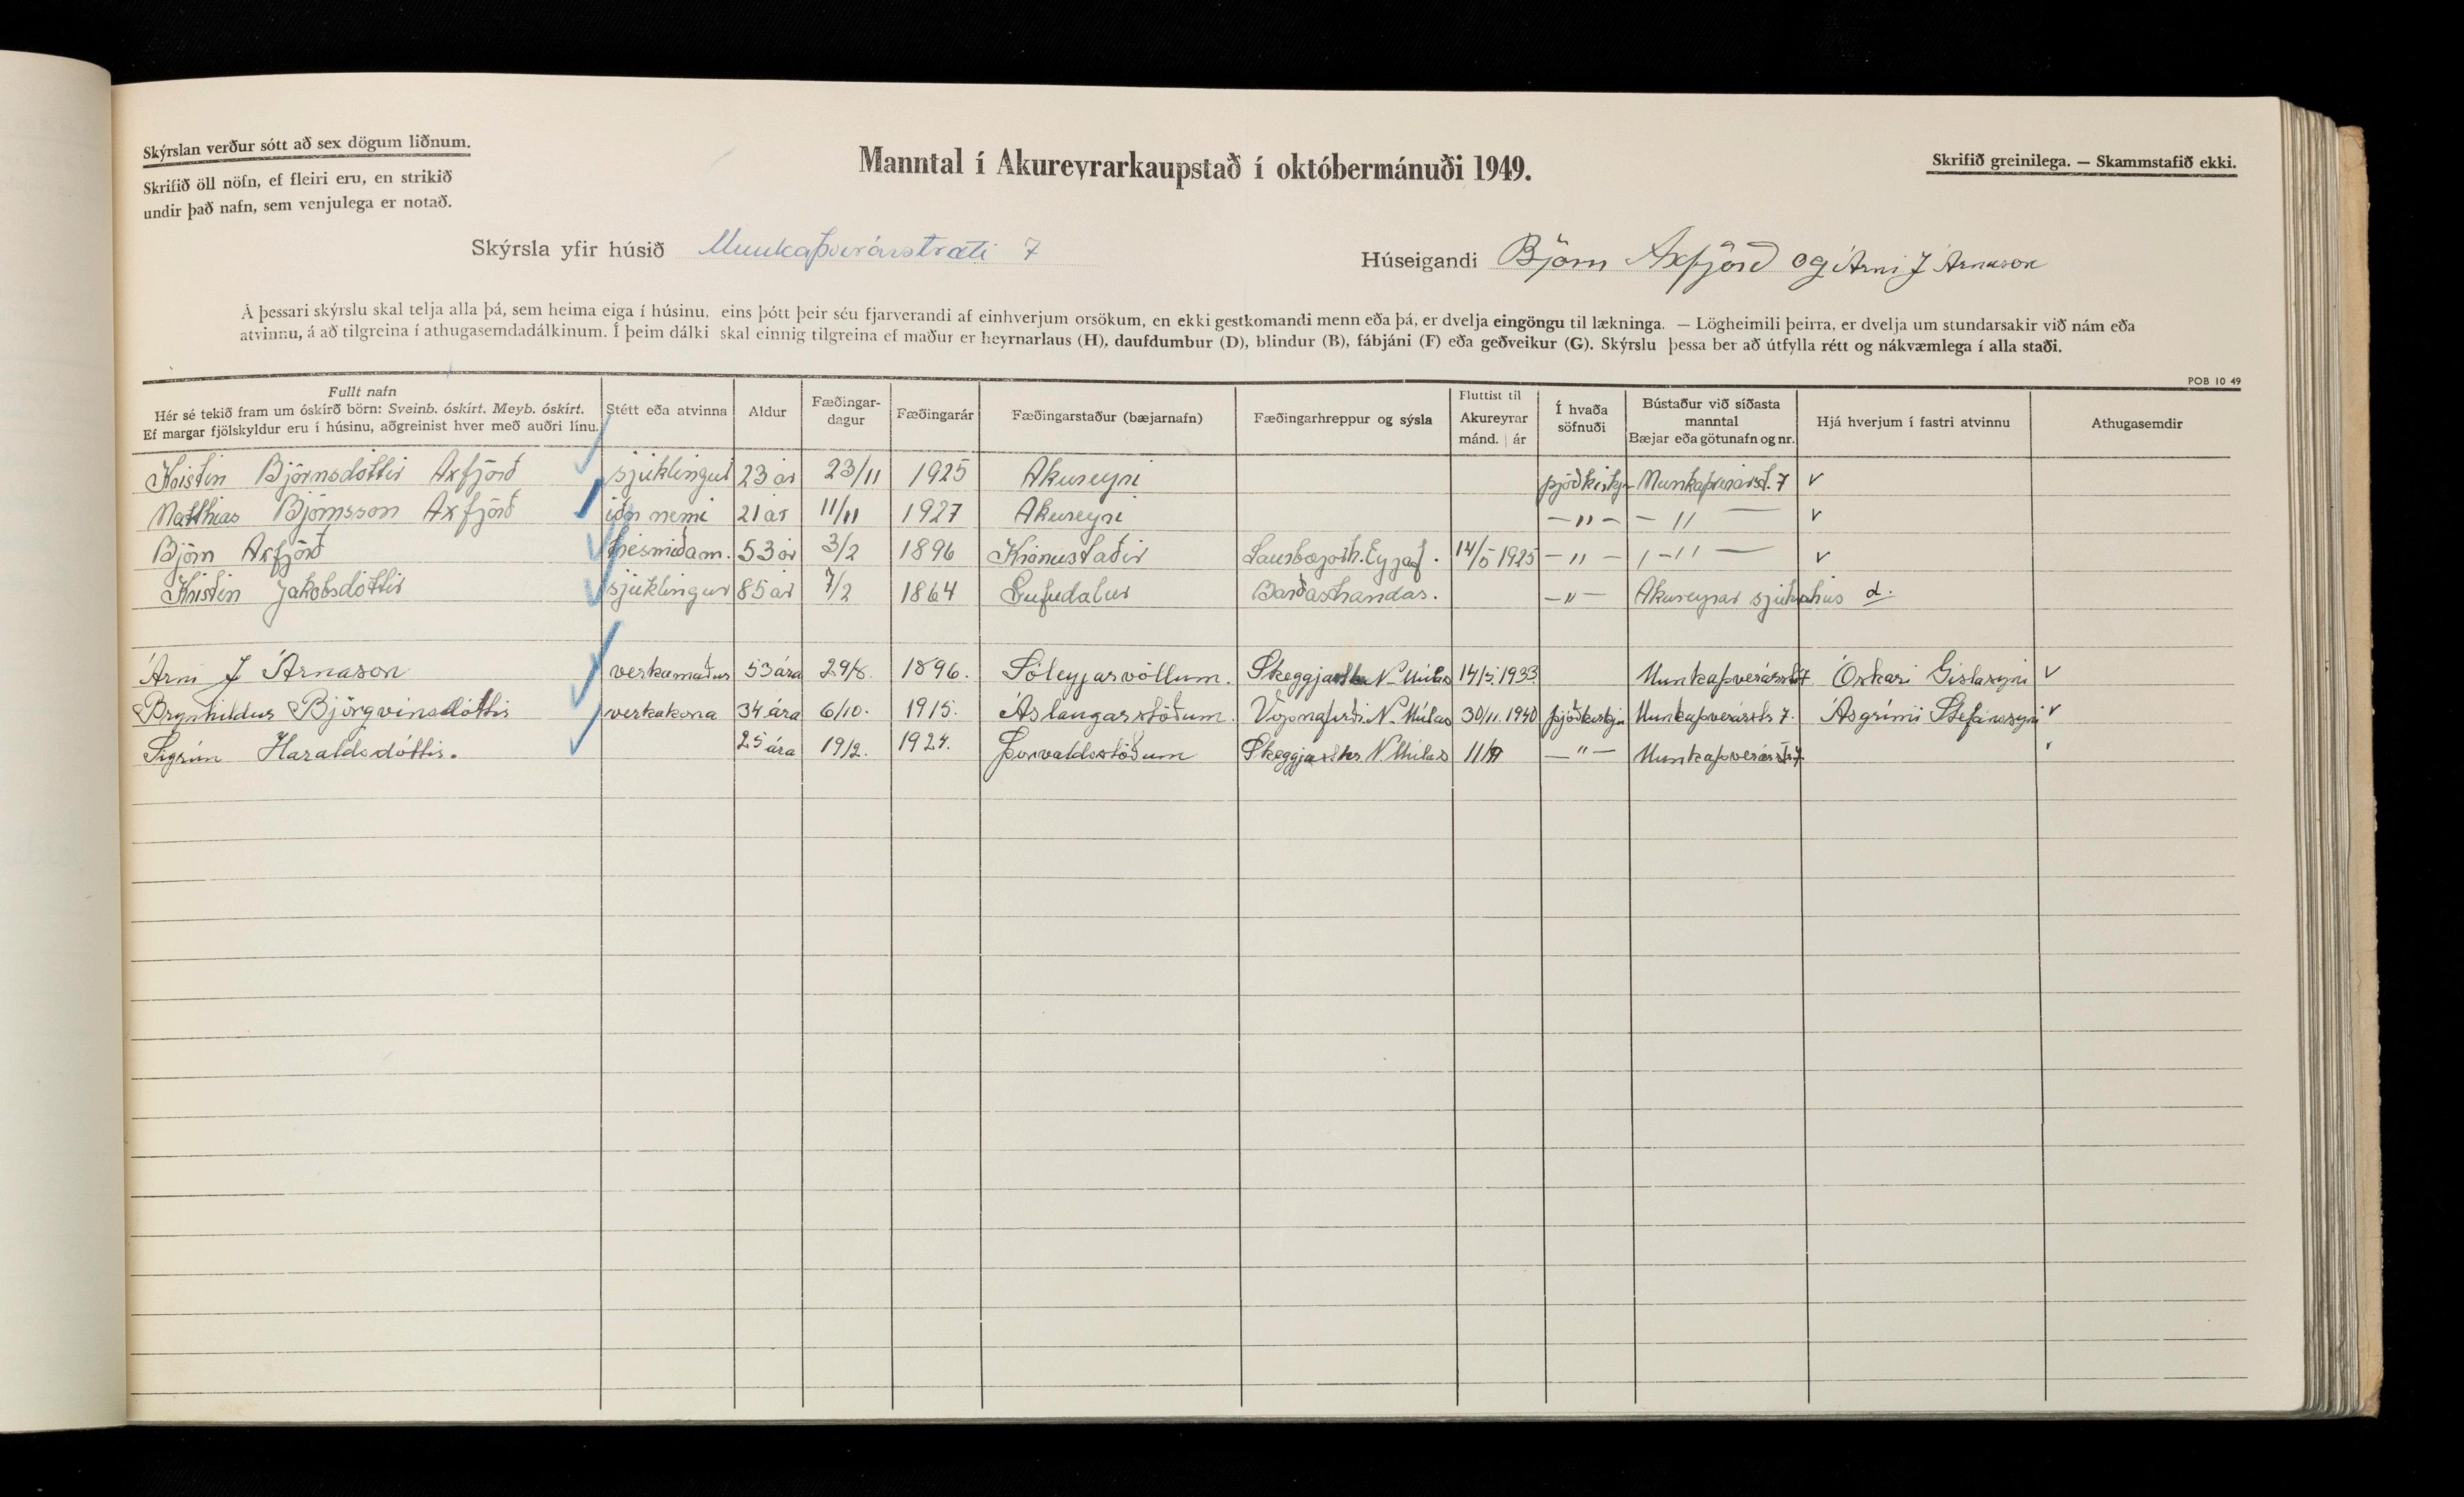 Skýrslan verður sótt að sex dögum liðnum.
Skrifið öll nöfn, ef fleiri eru, en strikið
undir það nafn, sem venjulega er notað.
Manntal í Akureyrarkaupstað í októbermánuði 1949.
Skrifið greinilega. — Skammstafið ekki.
Skýrsla yfir húsið Munkaþverárstræti 7
Húseigandi Björn Axfjörð og Árni J Árnason
Á þessari skýrslu skal telja alla þá, sem heima eiga í húsinu, eins þótt þeir séu fjarverandi af einhverjum orsökum, en ekki gestkomandi menn eða þá, er dvelja eingöngu til lækninga. — Lögheimili þeirra, er dvelja um stundarsakir við nám eða
atvinnu, á að tilgreina í athugasemdadálkinum. Í þeim dálki skal einnig tilgreina ef maður er heyrnarlaus (H), daufdumbur (D), blindur (B), fábjáni (F) eða geðveikur (G). Skýrslu þessa ber að útfylla rétt og nákvæmlega í alla staði.
POB 10 49
Fullt nafn
Hér sé tekið fram um óskírð börn: Sveinb. óskírt. Meyb. óskírt.
Ef margar fjölskyldur eru í húsinu, aðgreinist hver með auðri línu.
Stétt eða atvinna
Aldur
Fæðingar-
dagur
Fæðingarár
Fæðingarstaður (bæjarnafn)
Fæðingarhreppur og sýsla
Fluttist til
Akureyrar
mánd. | ár
Í hvaða
söfnuði
Bústaður við síðasta
manntal
Bæjar eða götunafn og nr.
Hjá hverjum í fastri atvinnu
Athugasemdir
Kristín Björnsdóttir Axfjörð sjúklingur 23 ár 23/11 1925 Akureyri þjóðkirkju Munkaþverárst. 7 v
Matthías Björnsson Axfjörð iðn nemi 21 ár 11/11 1927 Akureyri — " — — " — v
Björn Axfjörð trésmíðam. 53 ár 3/2 1896 Krónustaðir Saurbæjarh. Eyjaf. 14/5 1925 — " — — " — v
Kristín Jakobsdóttir sjúklingur 85 ár 7/2 1864 Gufudalur Barðastrandas. — " — Akureyrar sjúkrahús d.
Árni J Árnason verkamaður 53 ára 29/8. 1896. Sóleyjarvöllum. Skeggjast.hr N-Múlas 14/5. 1933 Munkaþverárstr 7 Óskari Gíslasyni v
Brynhildur Björgvinsdóttir verkakona 34 ára 6/10. 1915. Áslaugarstöðum. Vopnafirði. N-Múlas 30/11. 1940 þjóðkirkju Munkaþverárstr 7. Ásgrími Stefánssyni v
Sigrún Haraldsdóttir. 25 ára 19/2. 1924. Þorvaldsstöðum Skeggjast.hr. N.Múlas — " — Munkaþverárstr 7 v